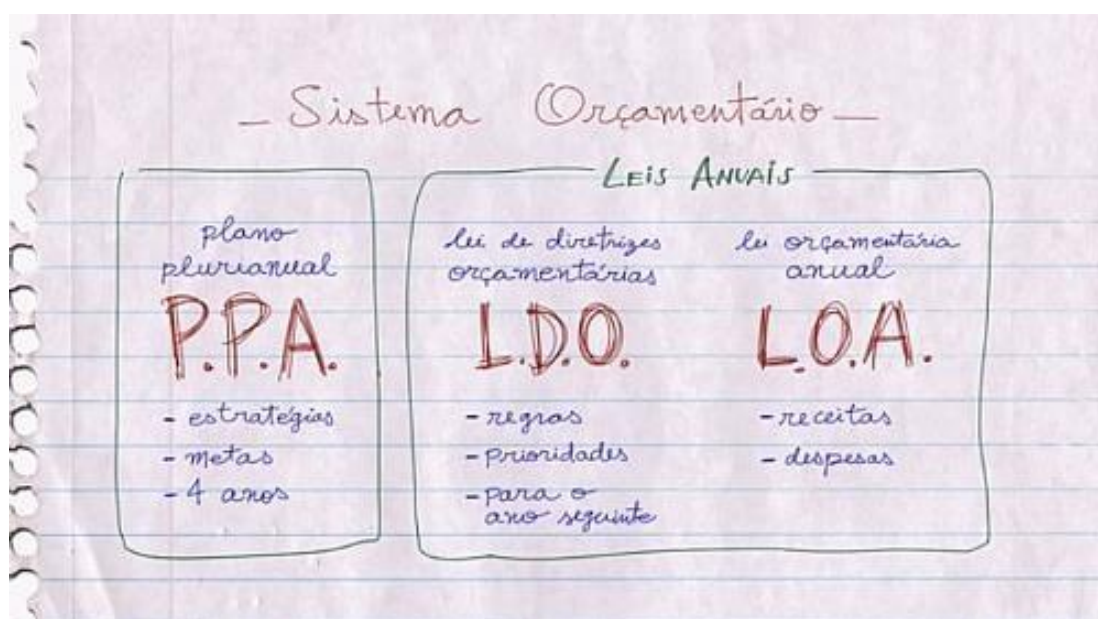 - Sistema Orçamentário -
plano
plurianual
P.P.A.
- estratégias
- metas
- 4 anos
LEIS ANUAIS
lei de diretrizes
orçamentárias
L.D.O.
- regras
- prioridades
- para o
ano seguinte
lei orçamentária
anual
L.O.A.
- receitas
- despesas